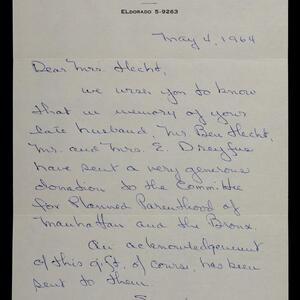 ELDORADO 5-9263
May 4, 1964
Dear Mrs. Hecht,
We wish you to know
that in memory of your
late husband, Mr Ben Hecht,
Mr. and Mrs. E. Dreyfus
have sent a very generous
donation to the Committee
for Planned Parenthood of
Manhattan and the Bronx.
An acknowledgement
of this gift, of course, has been
sent to them.